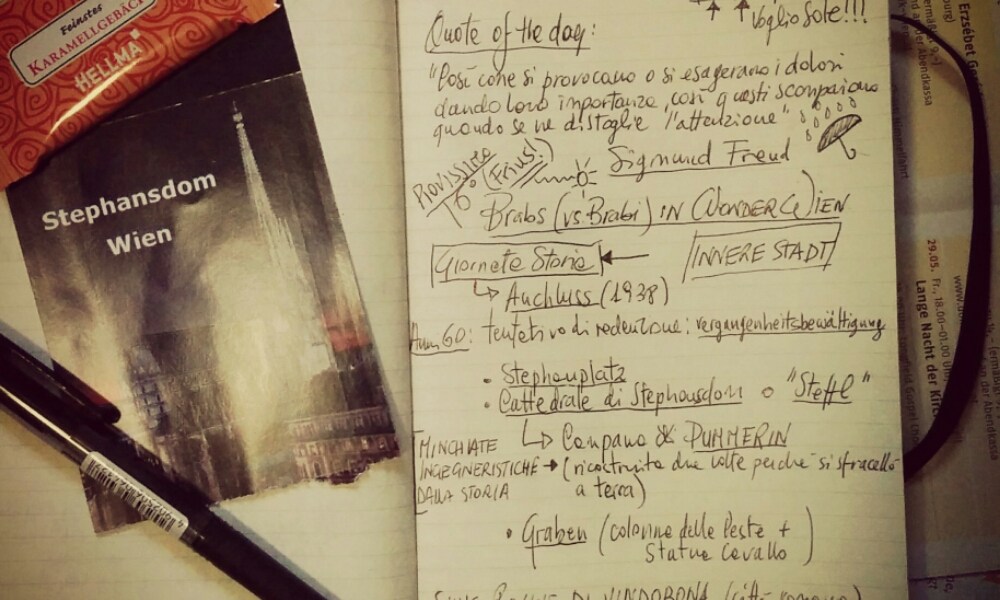 Feinstes
KARAMELLGEBÄCK
HELLMA
Stephansdom
Wien
Voglio Sole!!!
Quote of the day:
"Così come si provocano o si esagerano i dolori
dando loro importanza, così questi scompaiono
quando se ne distoglie l'attenzione"
Sigmund Freud
Provissimo
(Freius!)
Brabs (vs Brabi) IN (WONDER(W)IEN
Giornata Storia
INNERE STADT
Auchluss (1938)
Anni 60: tentativo di redenzione: vergangenheitsbewältigung
• Stephanplatz
• Cattedrale di Stephansdom o "Steffl"
Campana di PUMMERIN
MINCHIATE
INGEGNERISTICHE
DALLA STORIA
(ricostruita due volte perché si sfracellò
a terra)
• Graben (colonna della Peste +
Statua Cavallo)
VINDOBONA (città romana)
Erzsébet
an der Abendkassa
29.05. Fr., 18.00–01.00
Lange Nacht der